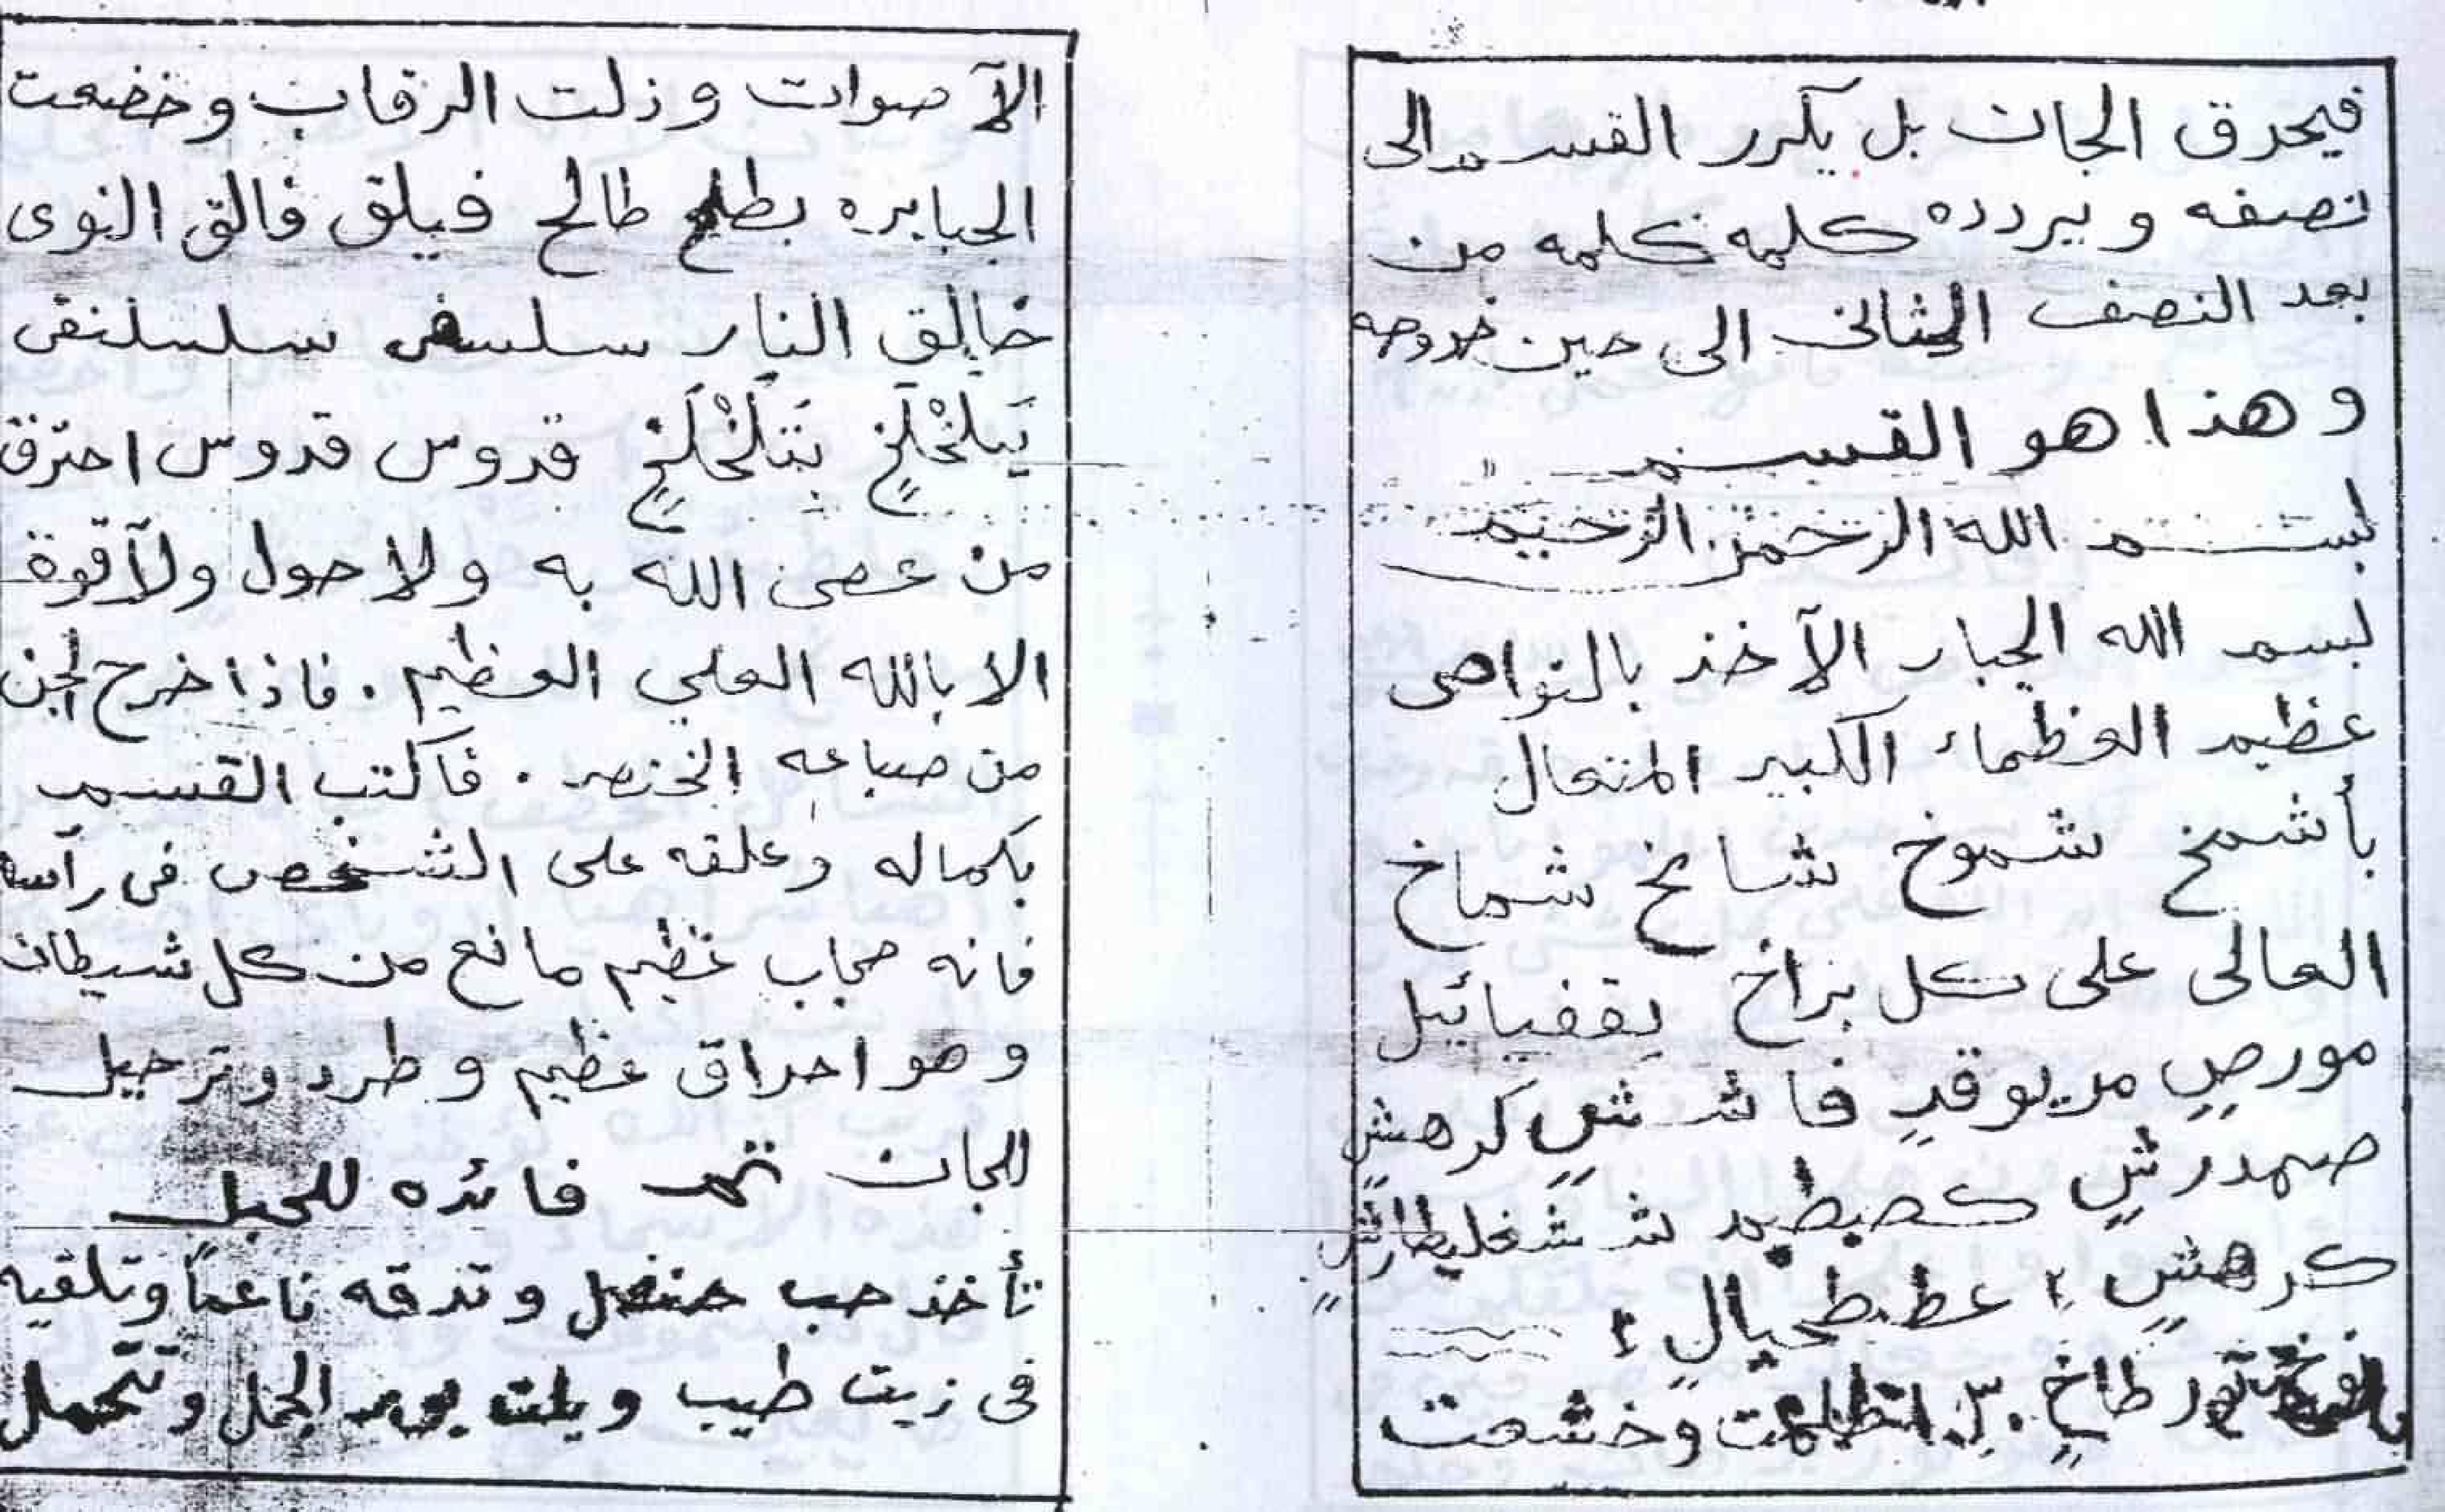 فيحرق الجان بل يكرر القسم الى
نصفه ويردده كلمه كلمه من
بعد النصف الثانى الى حين خروجه
وهذا هو القسم
بسم الله الرحمن الرحيم
بسم الله الجبار الآخذ بالنواصى
عظيم العظماء الكبير المتعال
بأشمخ شموخ شامخ شماخ
العالى على كل براخ يقفيائيل
مورصٍ مريوقدٍ فاششٍ كرهشٍ
صهدرشٍ كصطيم
كرهشٍ عططحيالٍ
طاخٍ وخشعت
الآصوات وذلت الرقاب وخضعت
الجبايره بطلح طالح فيلق فالق النوى
خالق النار سلسلنقى
يَيلَخْلَخٍ بَتَلَخْلَخٍ قدوس قدوس احترق
من عصى الله به ولا حول ولآقوة
الا بالله العلي العظيم . فاذا خرج الجن
من صباعه الخنصر . فاكتب القسم
بكماله وعلقه على الشخص فى رآسه
فانه حجاب عظيم مانع من كل شيطان
وهو احراق عظيم وطرد وترحيل
للجان تمت فائده للحبل
تأخذ حب حنضل وتدقه ناعماً وتلقيه
فى زيت طيب ويلت الجمل وتتحمل